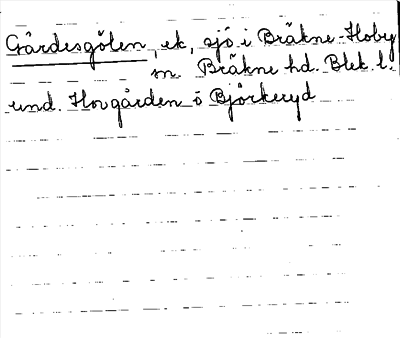 Gärdesgölen, ek, sjö i Bräkne-Hoby
sn. Bräkne hd. Blek. l.
und. Hovgården o Björkeryd